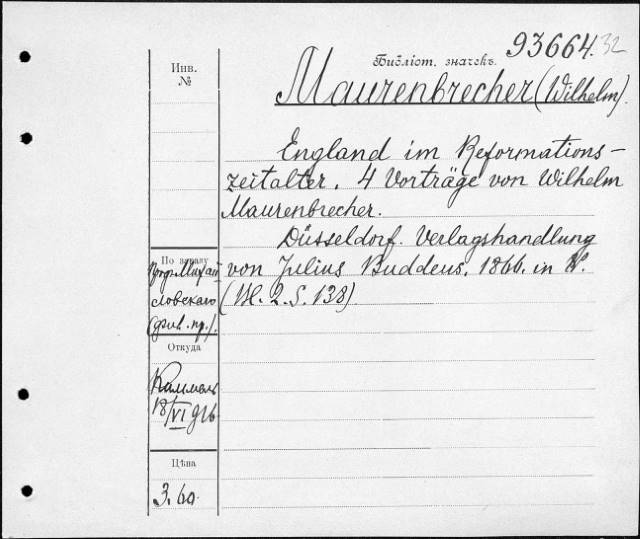 93664.32
Инв.
№
Библіот. значекъ.
Maurenbrecher (Wilhelm).
England im Reformations-
zeitalter. 4 Vorträge von Wilhelm
Maurenbrecher.
Düsseldorf. Verlagshandlung
По заказу
von Julius Buddeus. 1866. in 8°.
словскаго
(VI. 2. S. 138)
Откуда
18/VI
Цѣна
3.60.